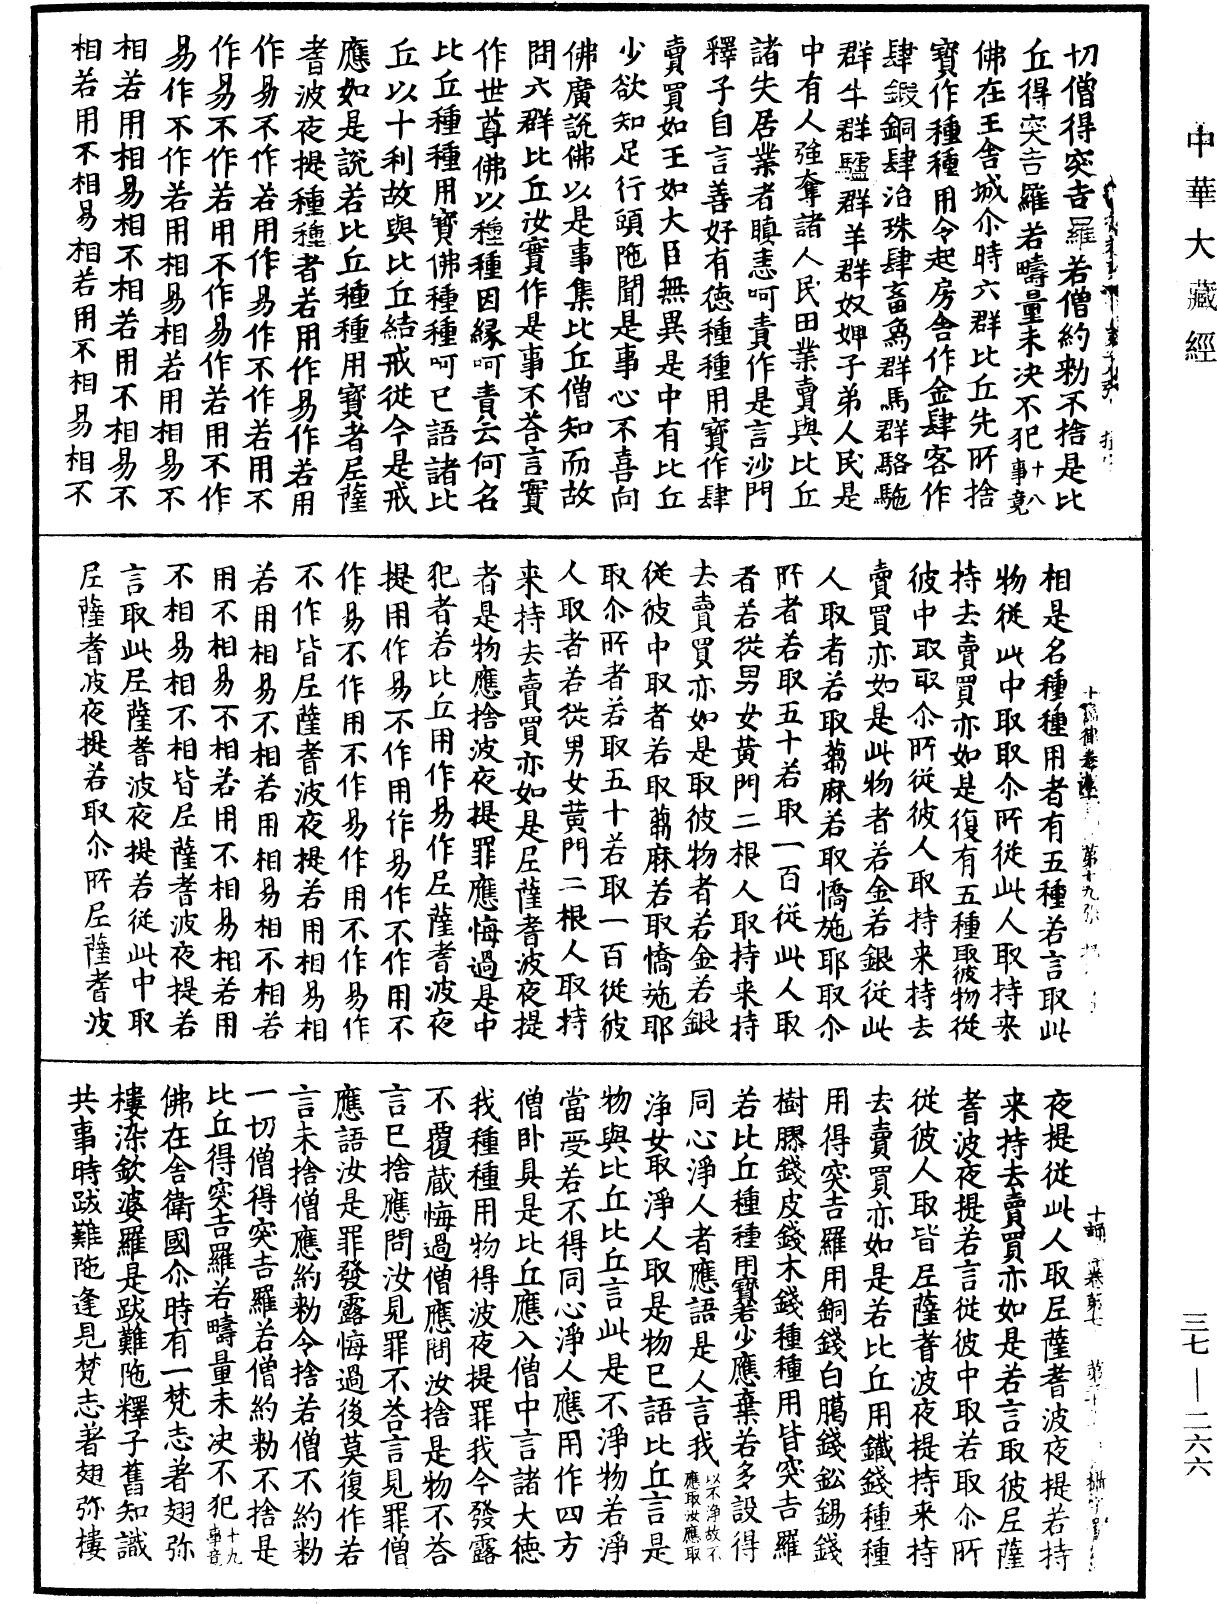 中華大藏經
切僧得突吉羅若僧約勑不捨是比
丘得突吉羅若疇量未決不犯十八事竟
佛在王舍城尒時六群比丘先所捨
寶作種種用令起房舍作金肆客作
肆鍛銅肆治珠肆畜鳥群馬群駱駞
群牛群驢群羊群奴婢子弟人民是
中有人強奪諸人民田業賣與比丘
諸失居業者瞋恚呵責作是言沙門
釋子自言善好有德種種用寶作肆
賣買如王如大臣無異是中有比丘
少欲知足行頭陁聞是事心不喜向
佛廣說佛以是事集比丘僧知而故
問六群比丘汝實作是事不荅言實
作世尊佛以種種因緣呵責云何名
比丘種種用寶佛種種呵已語諸比
丘以十利故與比丘結戒從今是戒
應如是說若比丘種種用寶者尼薩
耆波夜提種種者若用作易作若用
作易不作若用作易作不作若用不
作易不作若用不作易作若用不作
易作不作若用相易相若用相易不
相若用相易相不相若用不相易不
相若用不相易相若用不相易相不
相是名種種用者有五種若言取此
物從此中取取尒所從此人取持来
持去賣買亦如是復有五種取彼物從
彼中取取尒所從彼人取持来持去
賣買亦如是此物者若金若銀從此
人取者若取蒭麻若取憍施耶取尒
所者若取五十若取一百從此人取
者若從男女黄門二根人取持来持
去賣買亦如是取彼物者若金若銀
從彼中取者若取蒭麻若取憍施耶
取尒所者若取五十若取一百從彼
人取者若從男女黄門二根人取持
来持去賣買亦如是尼薩耆波夜提
者是物應捨波夜提罪應悔過是中
犯者若比丘用作易作尼薩耆波夜
提用作易不作用作易作不作用不
作易不作用不作易作用不作易作
不作皆尼薩耆波夜提若用相易相
若用相易不相若用相易相不相若
用不相易不相若用不相易相若用
不相易相不相皆尼薩耆波夜提若
言取此尼薩耆波夜提若從此中取
尼薩耆波夜提若取尒所尼薩耆波
夜提從此人取尼薩耆波夜提若持
来持去賣買亦如是若言取彼尼薩
耆波夜提若言從彼中取若取尒所
從彼人取皆尼薩耆波夜提持来持
去賣買亦如是若比丘用鐵錢種種
用得突吉羅用銅錢白鑞錢鈆錫錢
樹膠錢皮錢木錢種種用皆突吉羅
若比丘種種用寶若少應棄若多設得
同心淨人者應語是人言我以不淨故不應取汝應取
淨女取淨人取是物已語比丘言是
物與比丘比丘言此是不淨物若淨
當受若不得同心淨人應用作四方
僧卧具是比丘應入僧中言諸大德
我種種用物得波夜提罪我今發露
不覆藏悔過僧應問汝捨是物不荅
言已捨應問汝見罪不荅言見罪僧
應語汝是罪發露悔過後莫復作若
言未捨僧應約勑令捨若僧不約勑
一切僧得突吉羅若僧約勑不捨是
比丘得突吉羅若疇量未决不犯十九事竟
佛在舍衛國尒時有一梵志著翅弥
樓染欽婆羅是跋難陁釋子舊知識
共事時跋難陁逢見梵志著翅弥樓
三七—二六六